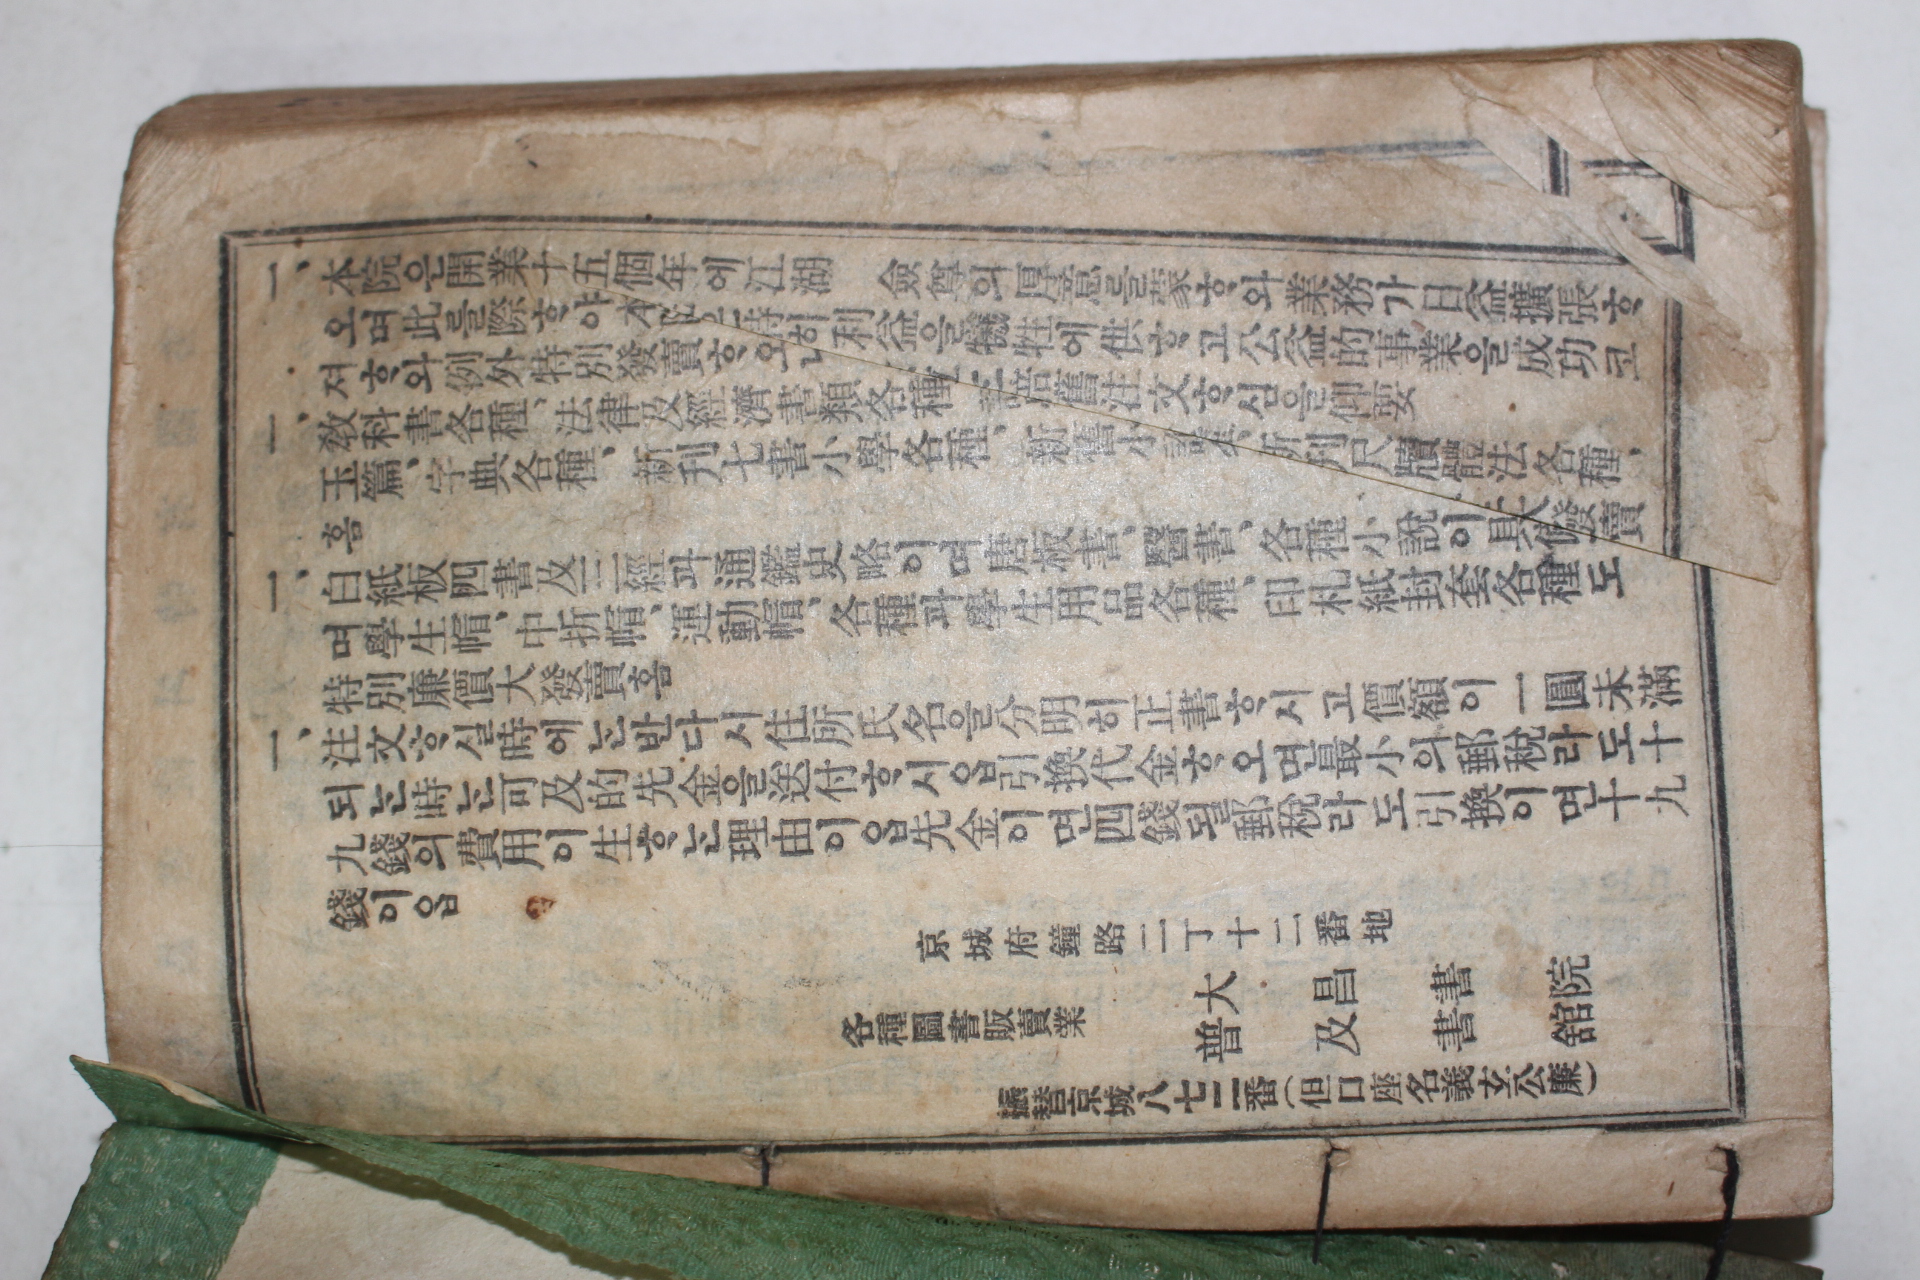 一、本院은開業十五個年에江湖 僉尊의厚意를蒙ᄒᆞ와業務가日益擴張ᄒᆞ
오며此를際ᄒᆞ야本 은特히利益을犧牲에供ᄒᆞ고公益的事業을成功코
져ᄒᆞ와例外特別發賣ᄒᆞ오니 倍舊注文ᄒᆞ심을仰要
一、敎科書各種、法律及經濟書類各種、新舊小說 、新刊尺牘體法各種、
玉篇、字典各種、新刊七書小學各種、 發賣
홈
一、白紙板四書及三經과通鑑史略이며唐板書、醫書、各種小說이具備
며學生帽、中折帽、運動帽、各種과學生用品各種、印札紙封套各種도
特別廉價大發賣홈
一、注文ᄒᆞ실時에ᄂᆞᆫ반다시住所氏名을分明히正書ᄒᆞ시고價額이一圓未滿
되ᄂᆞᆫ時ᄂᆞᆫ可及的先金을送付ᄒᆞ시ᄋᆞᆸ引換代金ᄒᆞ오면最小의郵稅라도十
九錢의費用이生ᄒᆞᄂᆞᆫ理由이ᄋᆞᆸ先金이면四錢될郵稅라도引換이면十九
錢이ᄋᆞᆸ
京城府鐘路二丁十二番地
各種圖書販賣業
大昌書院
普及書舘
振替京城八七二番(但口座名義玄公廉)